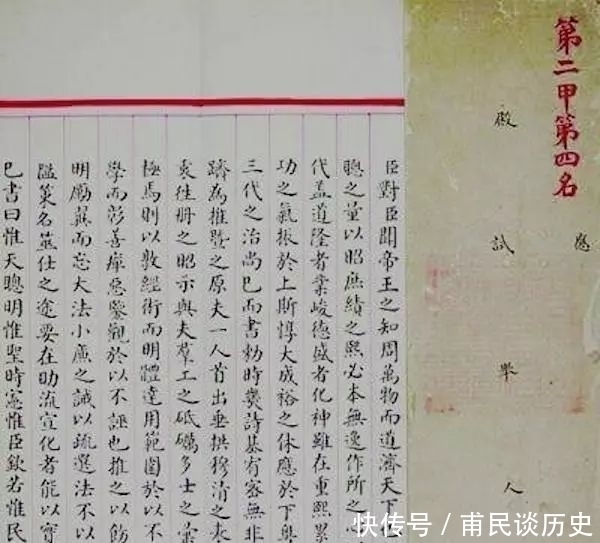 第二甲第四名
應
殿試舉人
臣對臣聞帝王之知周萬物而道濟天下
聰之量以昭庶績之熙必本無逸作所之心
代蓋道隆者業峻德盛者化神雖在重熙累
功之氣振於上斯惇大成裕之休應於下與
三代之治尚已而書勑時幾詩基宥密無非
躋為推暨之原夫一人首出垂拱穆清之表
往册之昭示與夫羣工之砥礪多士之彙
極焉則以敦經術而明體達用範圍於以不
學而彰善癉惡鑒觀於以不誣也推之以飭
明勵而忘大法小廉之誡以疏選法不以
濫策名筮仕之途要在助流宣化者能以實
已書曰惟天聰明惟聖時憲惟臣欽若惟民
快传号/甫民谈历史